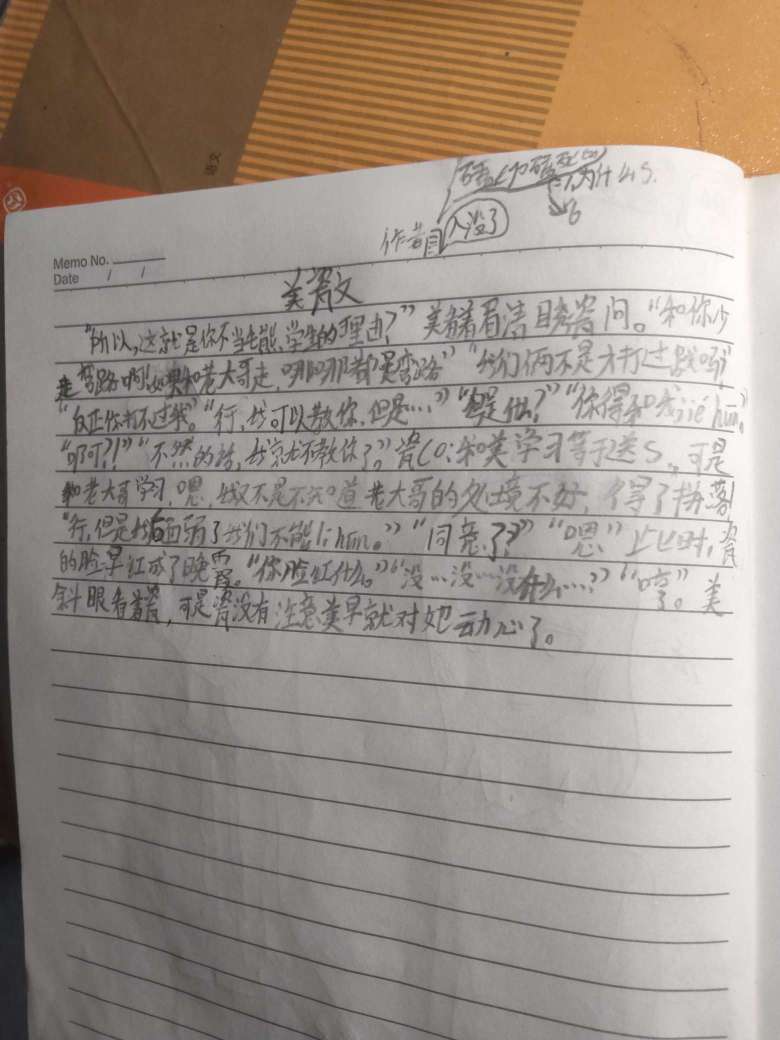 作者 入没了
Memo No.
Date / /
美瓷文
"所以,这就是你不当毛熊学生的理由?"美看着清晓瓷问。"和你少
走弯路啊!如果和老大哥走,明明那都是弯路""我们俩不是才打过战吗?"
"反正你打不过我。""行,我可以教你,但是…""但是什么?""你得和我jié hūn。"
"可可?!""不然的话,我就不教你了。"瓷CO:和美学习等于送S,可是
和老大哥学习,嗯,我又不是不知道老大哥的处境不好,
"行,但是我后面弱了我们不能lí hūn。""同意了?""嗯"此时,瓷
的脸早红成了晚霞。"你脸红什么。""没…没…没什么…""哼"。美
斜眼看着瓷,可是瓷没有注意美早就对她动心了。